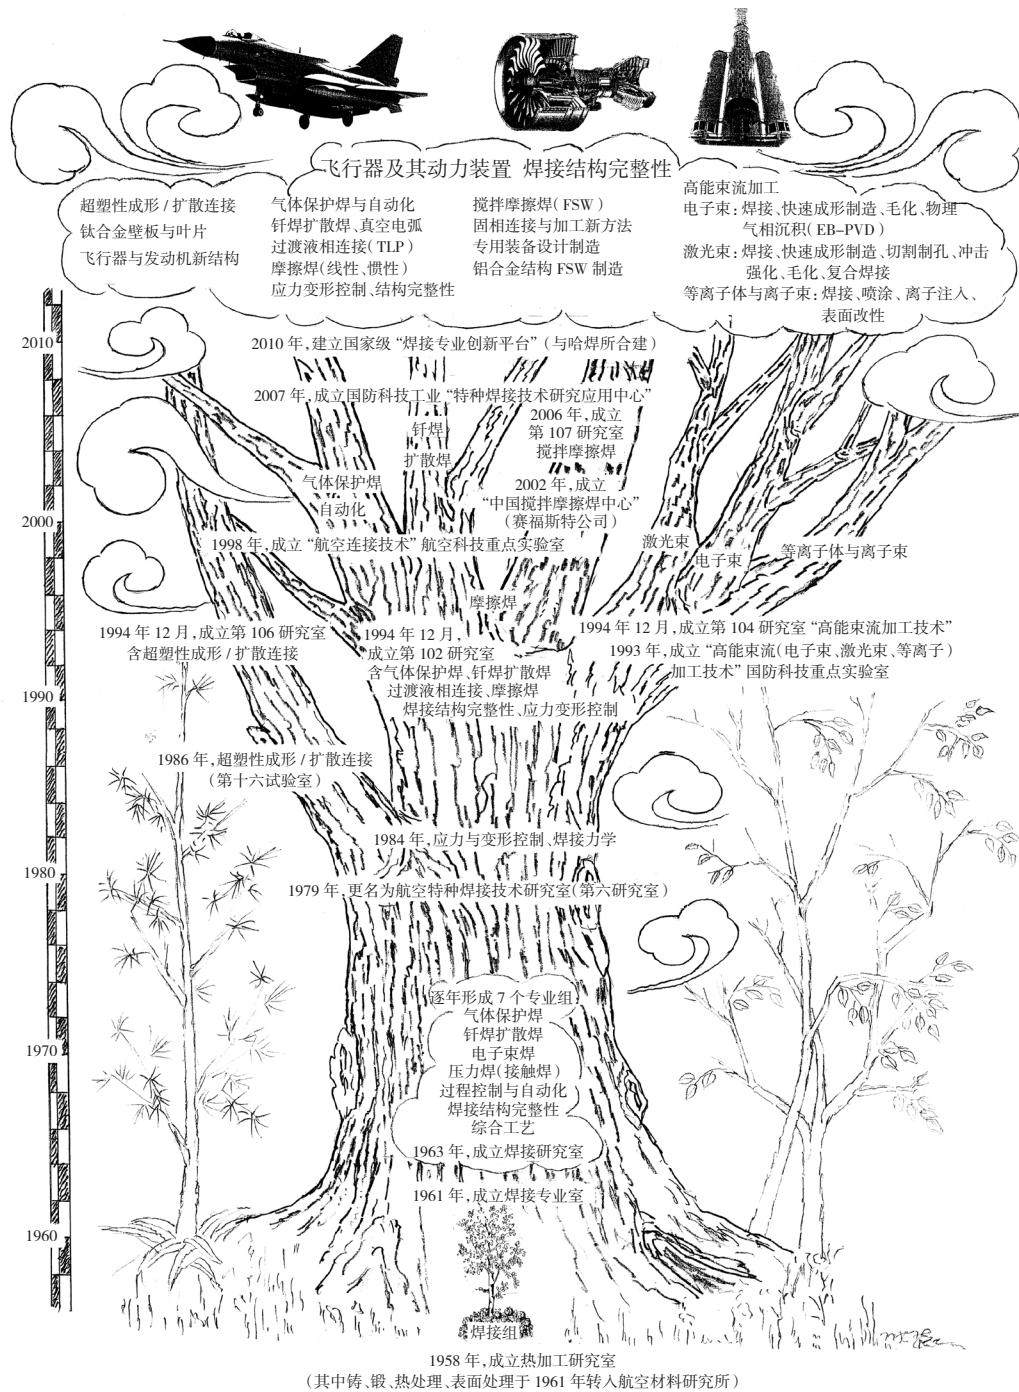 飞行器及其动力装置 焊接结构完整性
超塑性成形/扩散连接
钛合金壁板与叶片
飞行器与发动机新结构
气体保护焊与自动化
钎焊扩散焊、真空电弧
过渡液相连接(TLP)
摩擦焊(线性、惯性)
应力变形控制、结构完整性
搅拌摩擦焊(FSW)
固相连接与加工新方法
专用装备设计制造
铝合金结构 FSW 制造
高能束流加工
电子束:焊接、快速成形制造、毛化、物理
气相沉积(EB-PVD)
激光束:焊接、快速成形制造、切割制孔、冲击
强化、毛化、复合焊接
等离子体与离子束:焊接、喷涂、离子注入、
表面改性
2010
2010 年,建立国家级“焊接专业创新平台”(与哈焊所合建)
2007 年,成立国防科技工业“特种焊接技术研究应用中心”
钎焊
扩散焊
2006 年,成立
第 107 研究室
搅拌摩擦焊
气体保护焊
自动化
2002 年,成立
“中国搅拌摩擦焊中心”
(赛福斯特公司)
2000
1998 年,成立“航空连接技术”航空科技重点实验室
激光束
电子束
等离子体与离子束
摩擦焊
1994 年 12 月,成立第 106 研究室
含超塑性成形/扩散连接
1994 年 12 月,
成立第 102 研究室
含气体保护焊、钎焊扩散焊
过渡液相连接、摩擦焊
焊接结构完整性、应力变形控制
1994 年 12 月,成立第 104 研究室“高能束流加工技术”
1993 年,成立“高能束流(电子束、激光束、等离子)
加工技术”国防科技重点实验室
1990
1986 年,超塑性成形/扩散连接
(第十六试验室)
1984 年,应力与变形控制、焊接力学
1980
1979 年,更名为航空特种焊接技术研究室(第六研究室)
逐年形成 7 个专业组:
气体保护焊
钎焊扩散焊
电子束焊
压力焊(接触焊)
过程控制与自动化
焊接结构完整性
综合工艺
1970
1963 年,成立焊接研究室
1961 年,成立焊接专业室
1960
焊接组
1958 年,成立热加工研究室
(其中铸、锻、热处理、表面处理于 1961 年转入航空材料研究所)